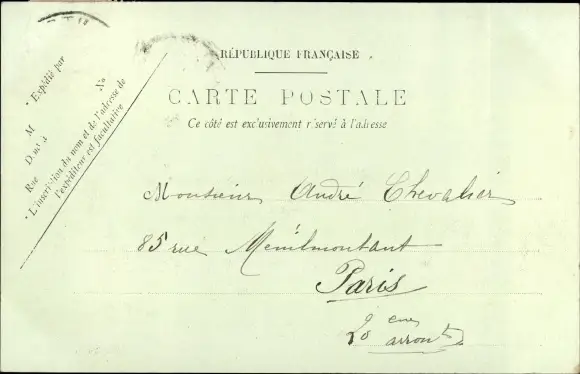 RÉPUBLIQUE FRANÇAISE
CARTE POSTALE
Ce côté est exclusivement réservé à l'adresse
Expédié par
M
Rue No
L'inscription du nom et de l'adresse de
l'expéditeur est facultative
Monsieur André Chevalier
85 rue Ménilmontant
Paris
20 eme
arront